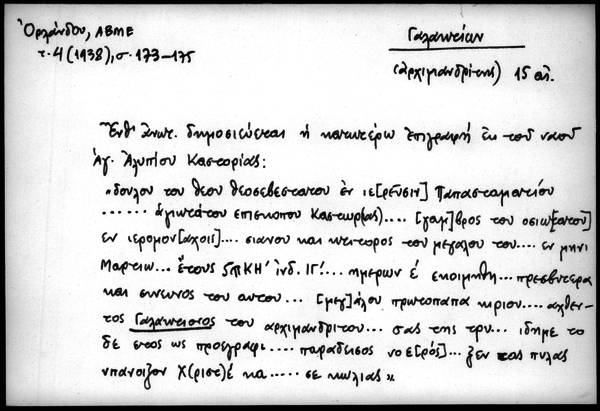 Ὀρλάνδου, ΑΒΜΕ
τ. 4 (1938), σ. 173-175
Γαλακτείων
(ἀρχιμανδρίτης) 15 αἰ.
Ἔνθ' ἀνωτ. δημοσιεύεται ἡ κατωτέρω ἐπιγραφή ἐκ τοῦ ναοῦ
Ἁγ. Ἀλυπίου Καστορίας:
"δουλου του θεου θεοσεβεστατου ἐν ιε[ρεῦσιν] Παπασταματίου
...... ἁγιωτάτου επισκοπου Καστωρί(ας).... [γαμ]βρος του οσιω[τατου]
εν ιερομον[άχοις].... σιανου και κτιτορος του μεγαλου του.... εν μηνι
Μαρτιω... ἔτους ϚϡΚΗ' ἰνδ. ΙΓ'... ημερων ε' εκοιμηθη... πρεσβυτερα
και συνευνος του αυτου... [μεγ]άλου πρωτοπαπα κυριου....
τος του αρχιμανδριτου... σας της τρν... ιδημε το
δε ετος ως προεγραφι.... παραδεισος νοε[ρός]... ξεν τας πυλας
υπανοιξον Χ(ριστ)έ κα..... σε κωλιας"